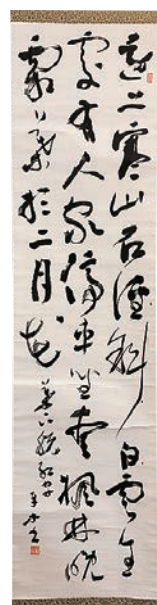 遠上寒山石徑斜白雲生
處有人家停車坐愛楓林晚
霜葉於二月花
葉下脱紅字